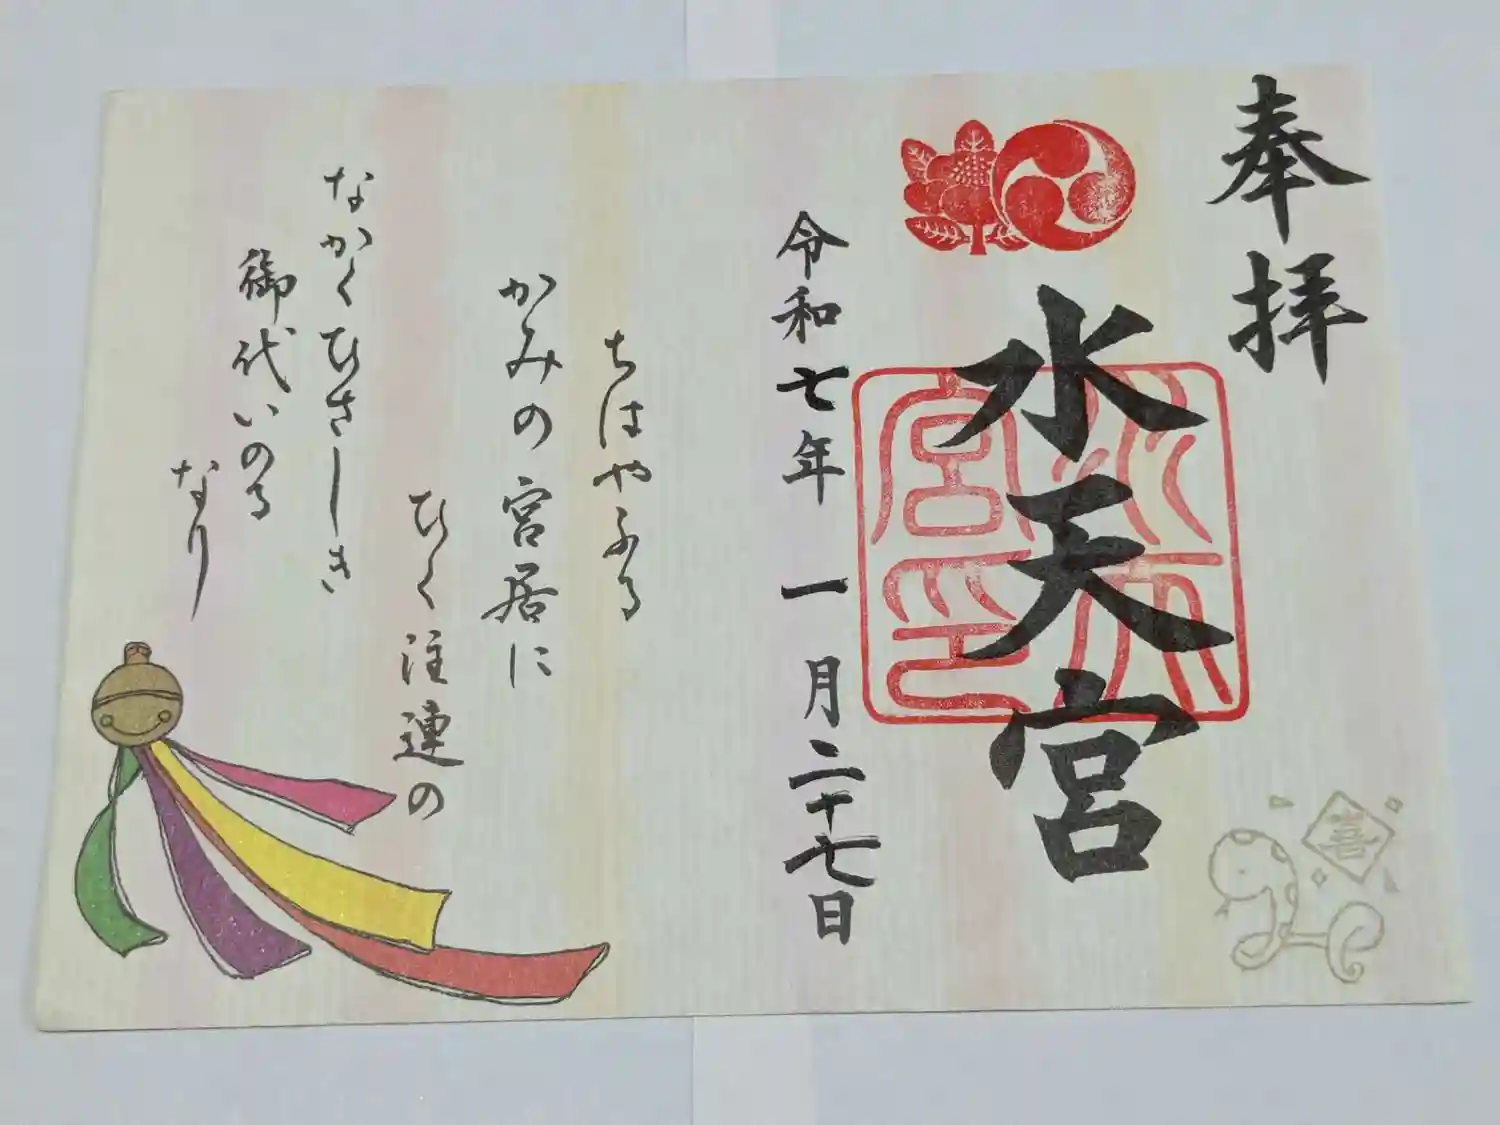 奉拝
水天宮
水天宮印
令和七年一月二十七日
ちはやふる
かみの宮居に
ひく注連の
なかくひさしき
御代いのる
なり
喜